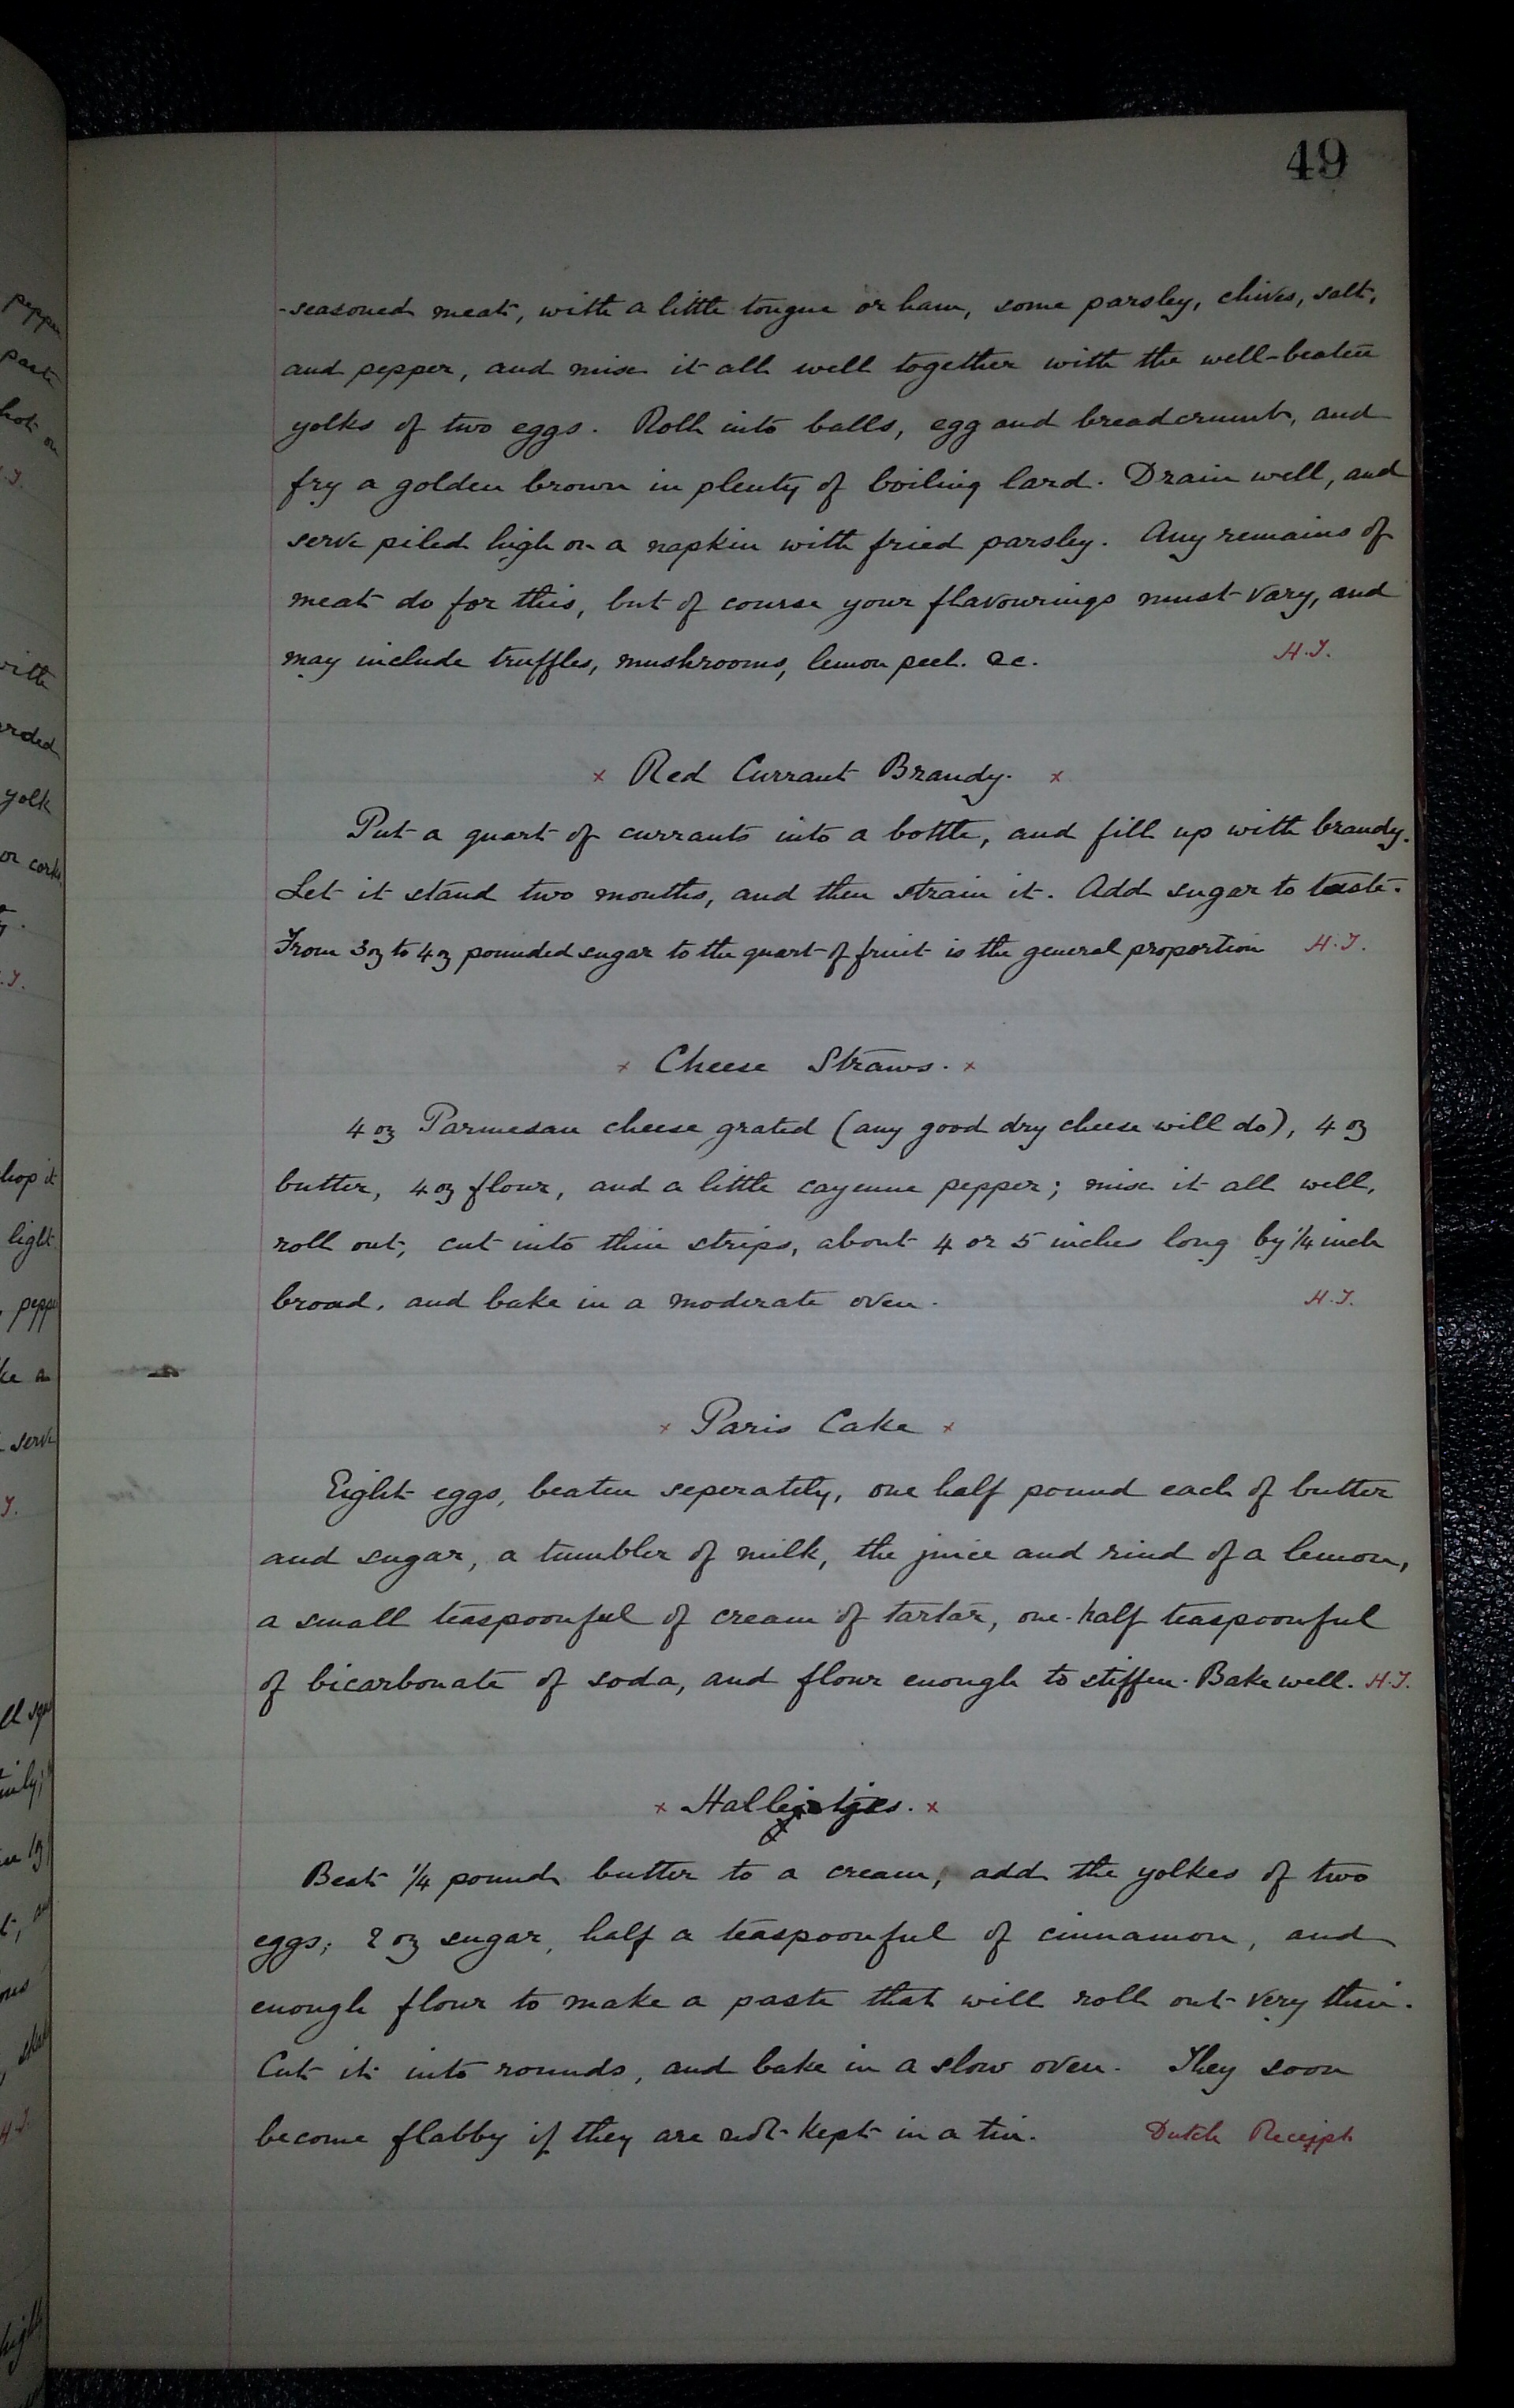 49
-seasoned meat, with a little tongue or ham, some parsley, chives, salt,
and pepper, and mix it all well together with the well-beaten
yolks of two eggs. Roll into balls, egg and breadcrumb, and
fry a golden brown in plenty of boiling lard. Drain well, and
serve piled high on a napkin with fried parsley. Any remains of
meat do for this, but of course your flavourings must vary, and
may include truffles, mushrooms, lemon peel. &c. H.T.
x Red Currant Brandy. x
Put a quart of currants into a bottle, and fill up with brandy.
Let it stand two months, and then strain it. Add sugar to taste.
From 3oz to 4oz pounded sugar to the quart of fruit is the general proportion H.T.
x Cheese Straws. x
4 oz Parmesan cheese grated (any good dry cheese will do), 4 oz
butter, 4 oz flour, and a little cayenne pepper; mix it all well,
roll out, cut into thin strips, about 4 or 5 inches long by 1/4 inch
broad, and bake in a moderate oven. H.T.
x Paris Cake x
Eight eggs, beaten seperately, one half pound each of butter
and sugar, a tumbler of milk, the juice and rind of a lemon,
a small teaspoonful of cream of tartar, one-half teaspoonful
of bicarbonate of soda, and flour enough to stiffen. Bake well. H.T.
x x
Beat 1/4 pound butter to a cream, add the yolkes of two
eggs; 2 oz sugar, half a teaspoonful of cinnamon, and
enough flour to make a paste that will roll out very thin.
Cut it into rounds, and bake in a slow oven. They soon
become flabby if they are not kept in a tin. Dutch Receipt